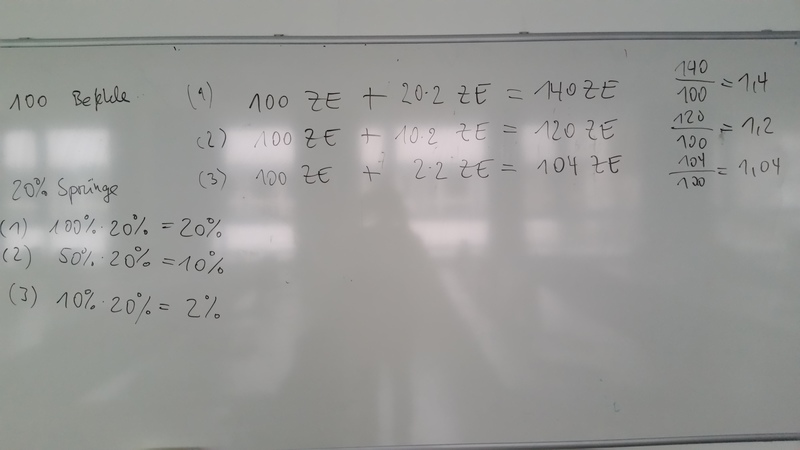 100 Befehle (1) 100 ZE + 20·2 ZE = 140 ZE 140/100 = 1,4
(2) 100 ZE + 10·2 ZE = 120 ZE 120/100 = 1,2
(3) 100 ZE + 2·2 ZE = 104 ZE 104/100 = 1,04
20% Sprünge
(1) 100%·20% = 20%
(2) 50%·20% = 10%
(3) 10%·20% = 2%